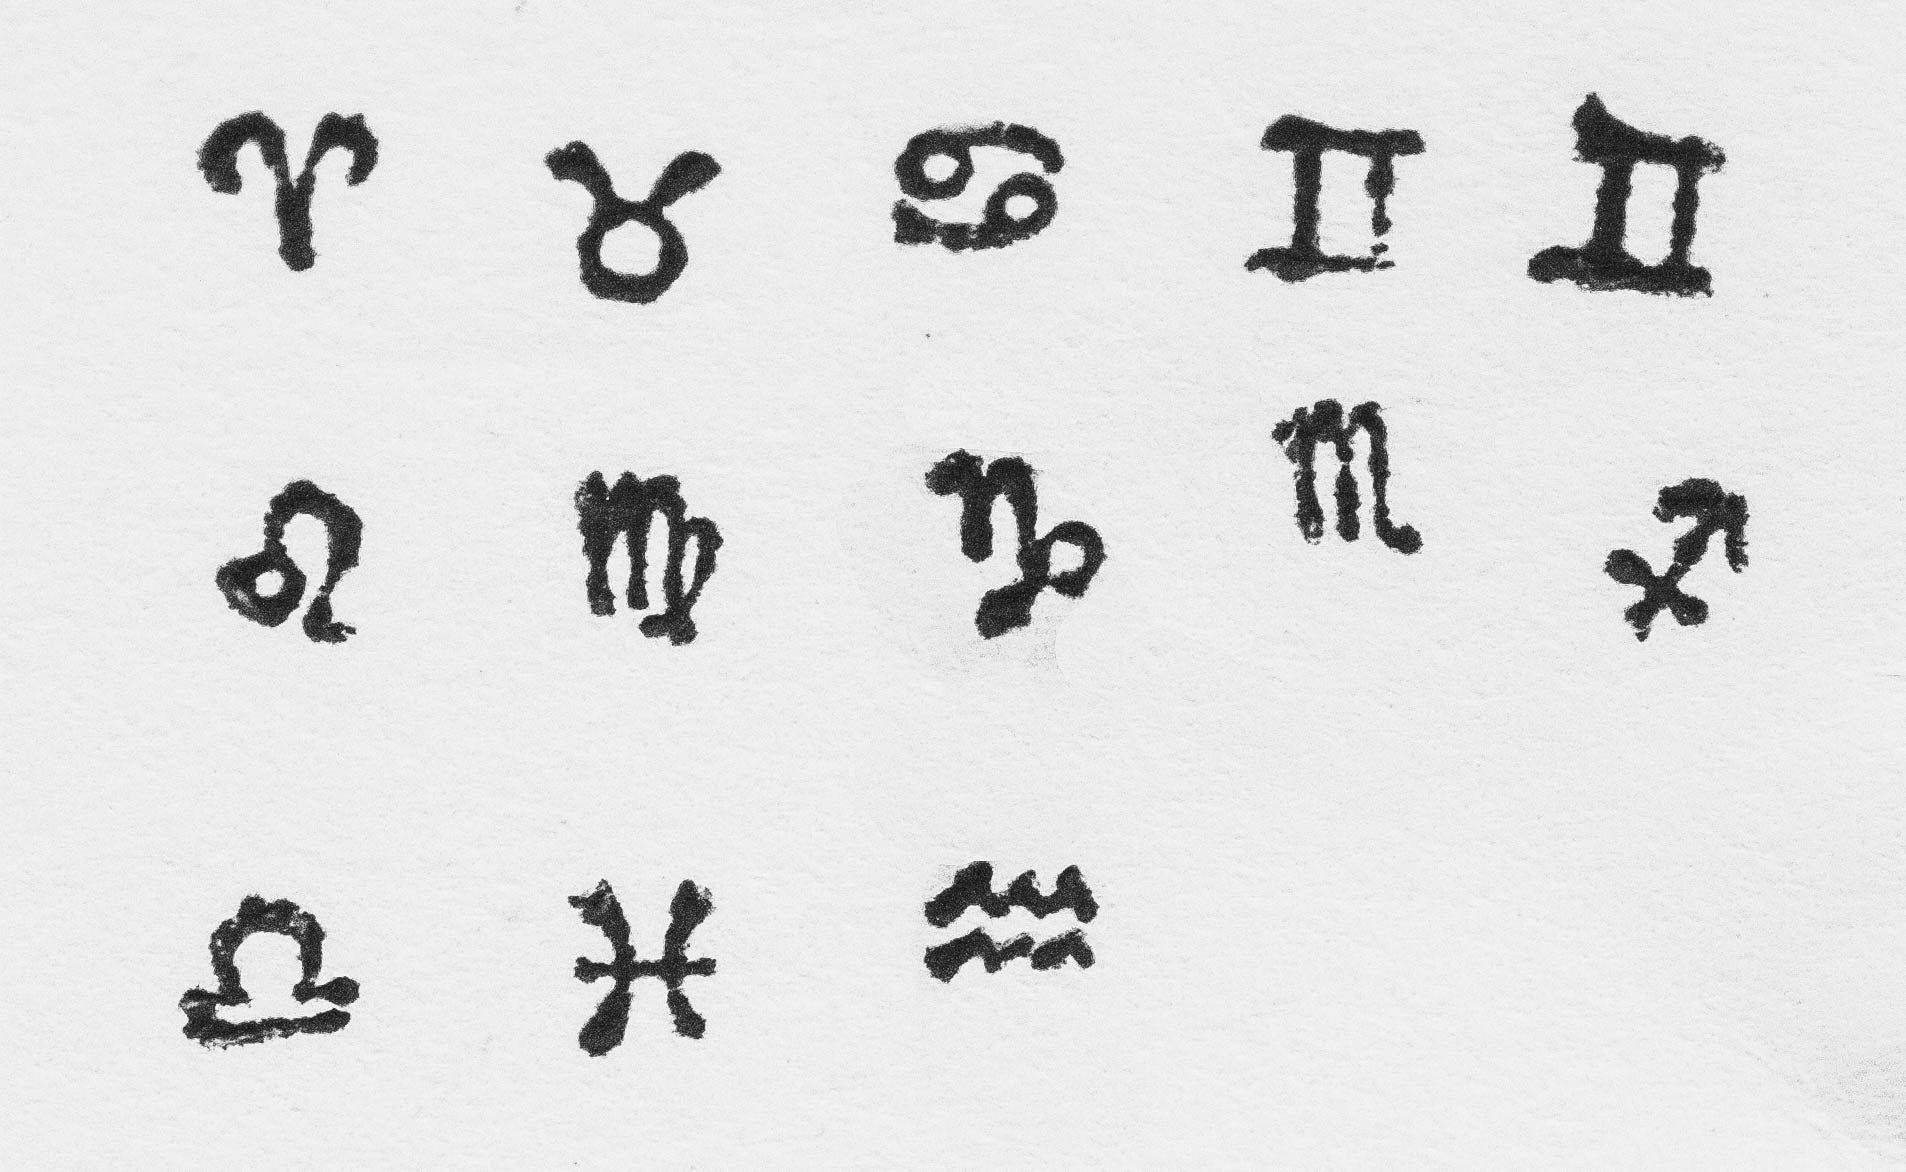 ♈ ♉ ♋ ♊ ♊
♌ ♍ ♑ ♏ ♐
♎ ♓ ♒